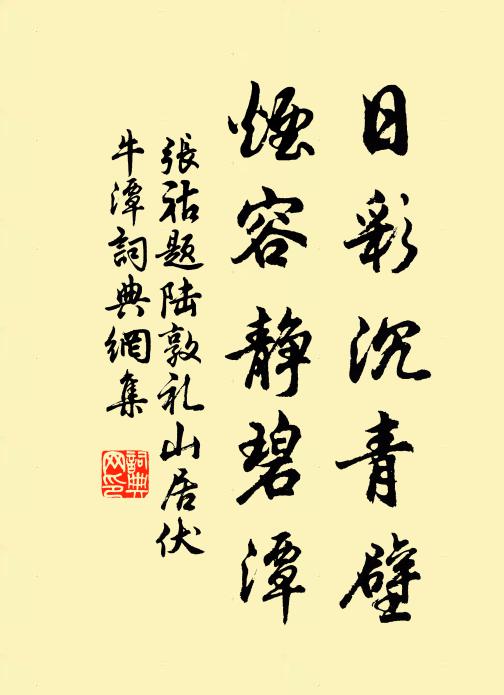 日彩沉青壁
烟容静碧潭
張祜題陸敦礼山居伏
牛潭詞典網集
詞典网印